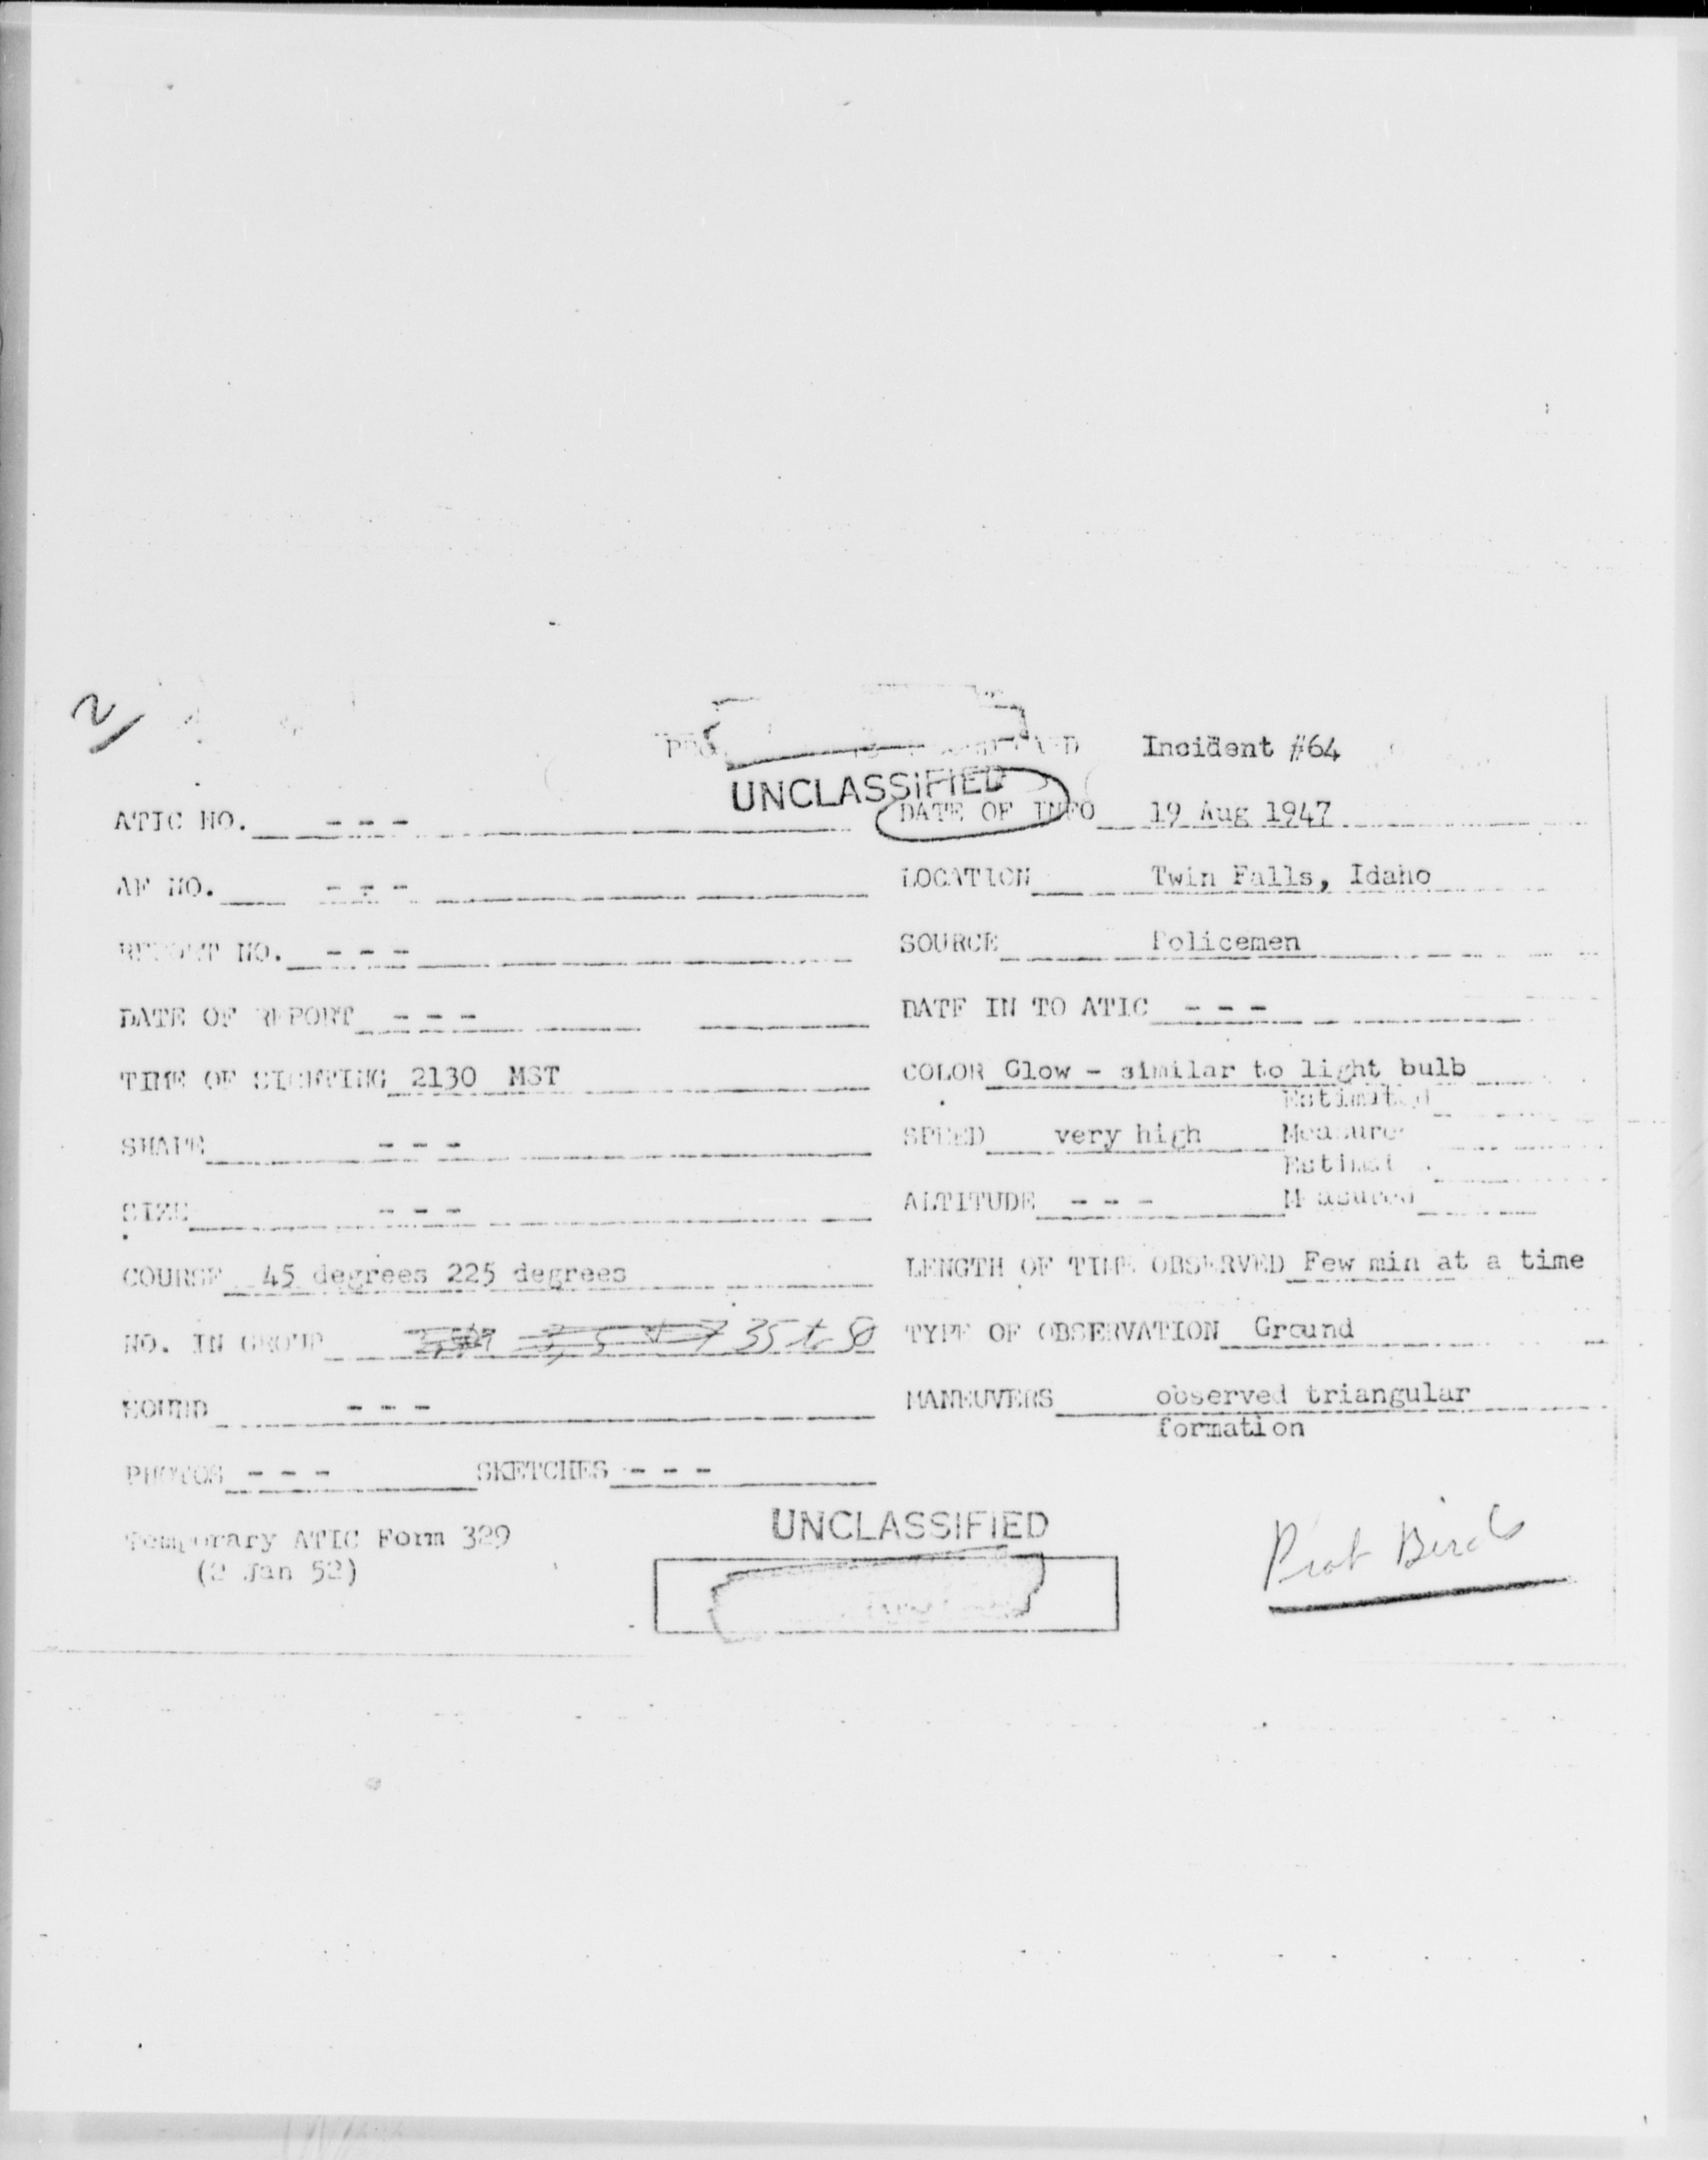 2
Incident #64
UNCLASSIFIED
ATIC NO. - - - DATE OF INFO 19 Aug 1947
AF NO. - - - LOCATION Twin Falls, Idaho
REPORT NO. - - - SOURCE Policemen
DATE OF REPORT - - - DATE IN TO ATIC - - -
TIME OF SIGHTING 2130 MST COLOR Glow - similar to light bulb
Estimated
SHAPE - - - SPEED very high Measure
Estimat
SIZE - - - ALTITUDE - - - Measured
COURSE 45 degrees 225 degrees LENGTH OF TIME OBSERVED Few min at a time
NO. IN GROUP 35 to 50 TYPE OF OBSERVATION Ground
SOUND - - - MANEUVERS observed triangular
formation
PHOTOS - - - SKETCHES - - -
Temporary ATIC Form 329
(2 Jan 52)
UNCLASSIFIED
Prob Birds